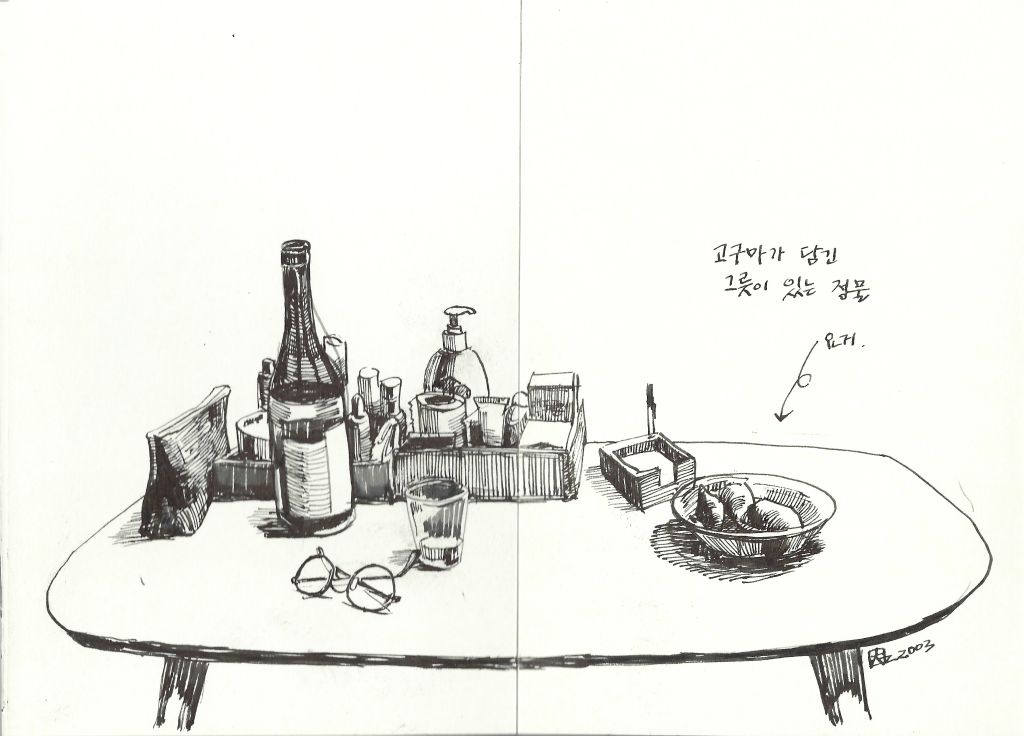 고구마가 담긴
그릇이 있는 정물
요거.
2003